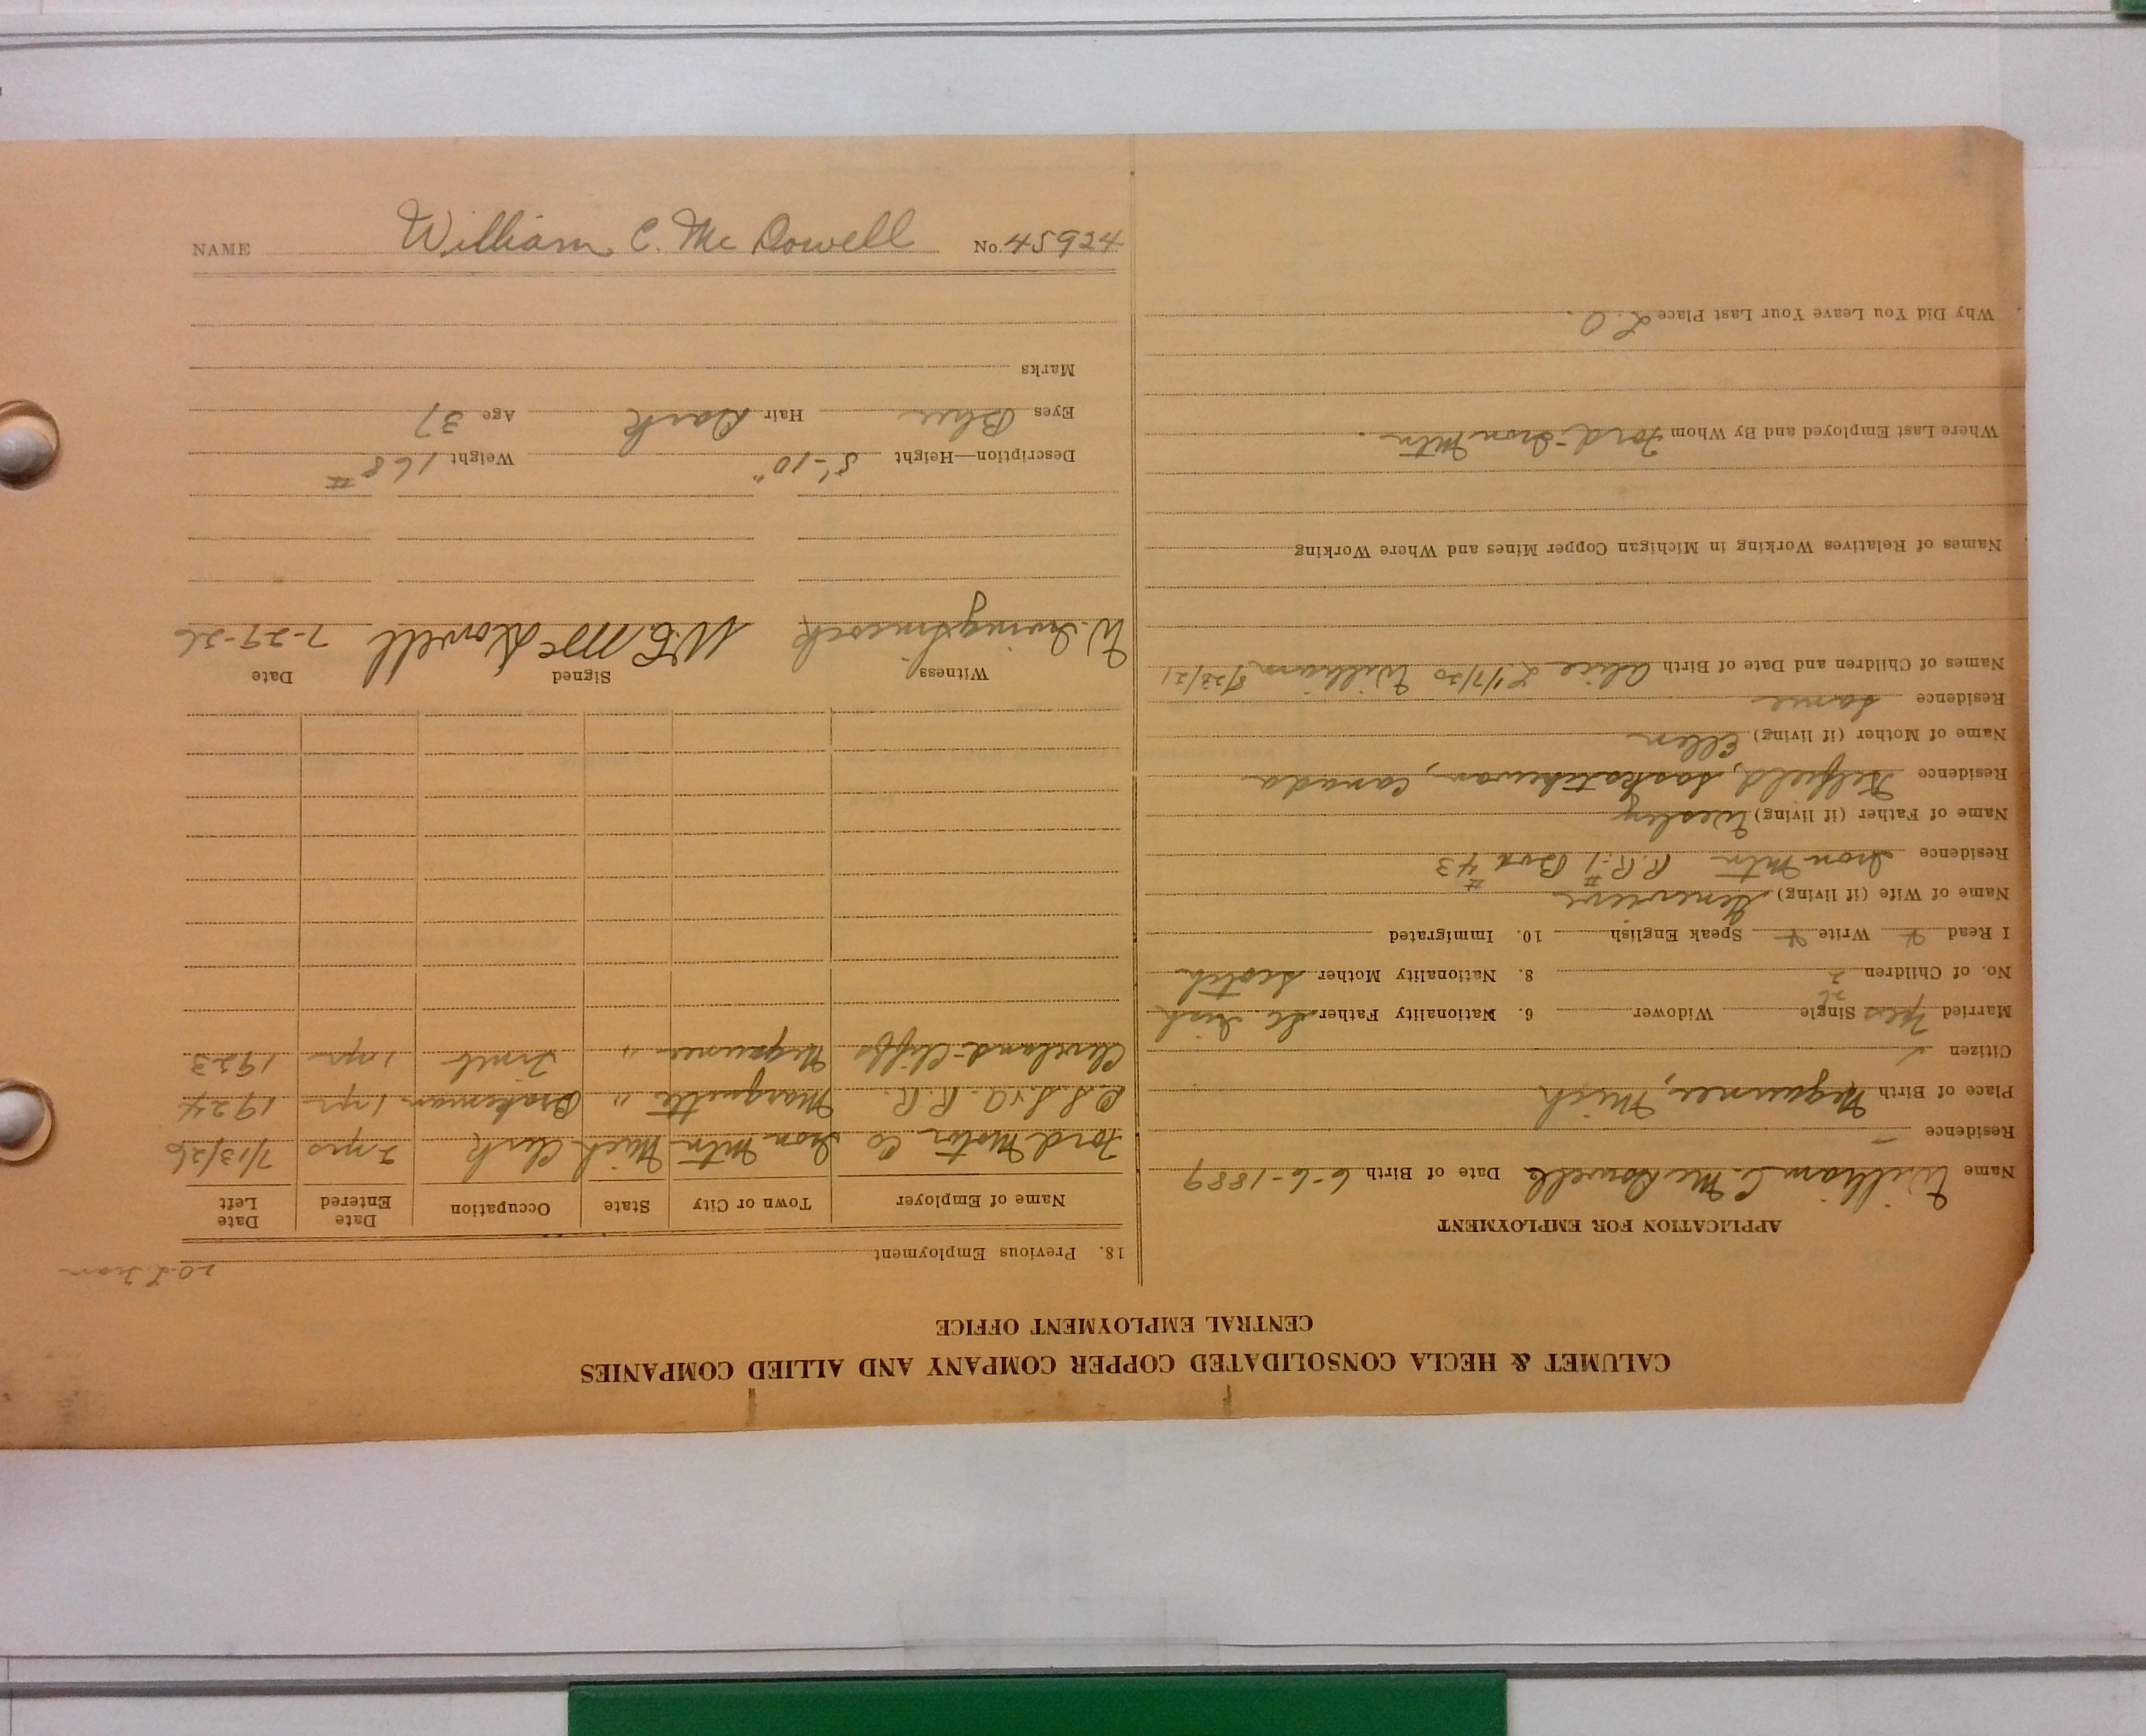 CALUMET & HECLA CONSOLIDATED COPPER COMPANY AND ALLIED COMPANIES
CENTRAL EMPLOYMENT OFFICE
APPLICATION FOR EMPLOYMENT
Name William C. McDowell Date of Birth 6-6-1889
Residence —
Place of Birth Negaunee, Mich
Citizen ✓
Married Yes Single Widower 6. Nationality Father Sc Irish
26
No. of Children 2 8. Nationality Mother Scotch
I Read Write Speak English 10. Immigrated
Name of Wife (if living) Genevieve
Residence Iron Mtn R.R. #1 Box #43
Name of Father (if living) Wesley
Residence Saskatchewan, Canada
Name of Mother (if living) Ellen
Residence Same
Names of Children and Date of Birth Alice William 8/23/21
Names of Relatives Working in Michigan Copper Mines and Where Working
Where Last Employed and By Whom Ford-Iron Mtn.
Why Did You Leave Your Last Place L.O.
18. Previous Employment
Name of Employer Town or City State Occupation Date Entered Date Left
Ford Motor Co Iron Mtn Mich Clerk 2 yrs 7/13/26
Marquette " Brakeman 1 yr 1924
Cleveland-Cliffs Negaunee " 1 yr 1923
Witness Signed Date
W. Irving W.C. McDowell 7-29-26
Description—Height 5'-10" Weight 168#
Eyes Blue Hair Dark Age 37
Marks
NAME William C. McDowell No. 45924